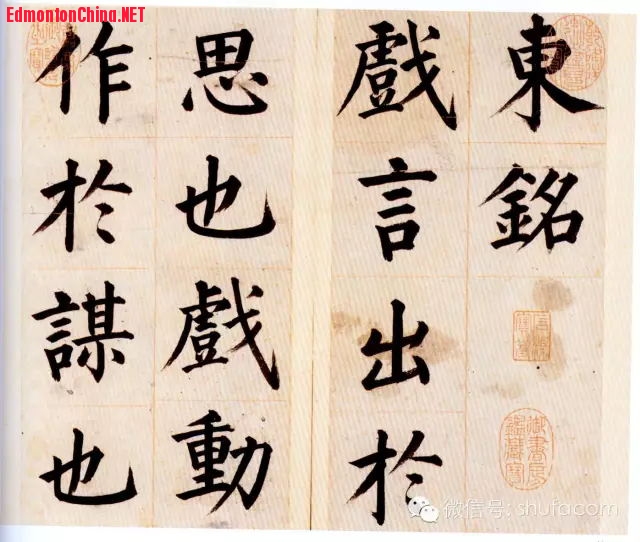 EdmontonChina.NET
東銘
戲言出於
思也戲動
作於謀也
微信号: shufacom